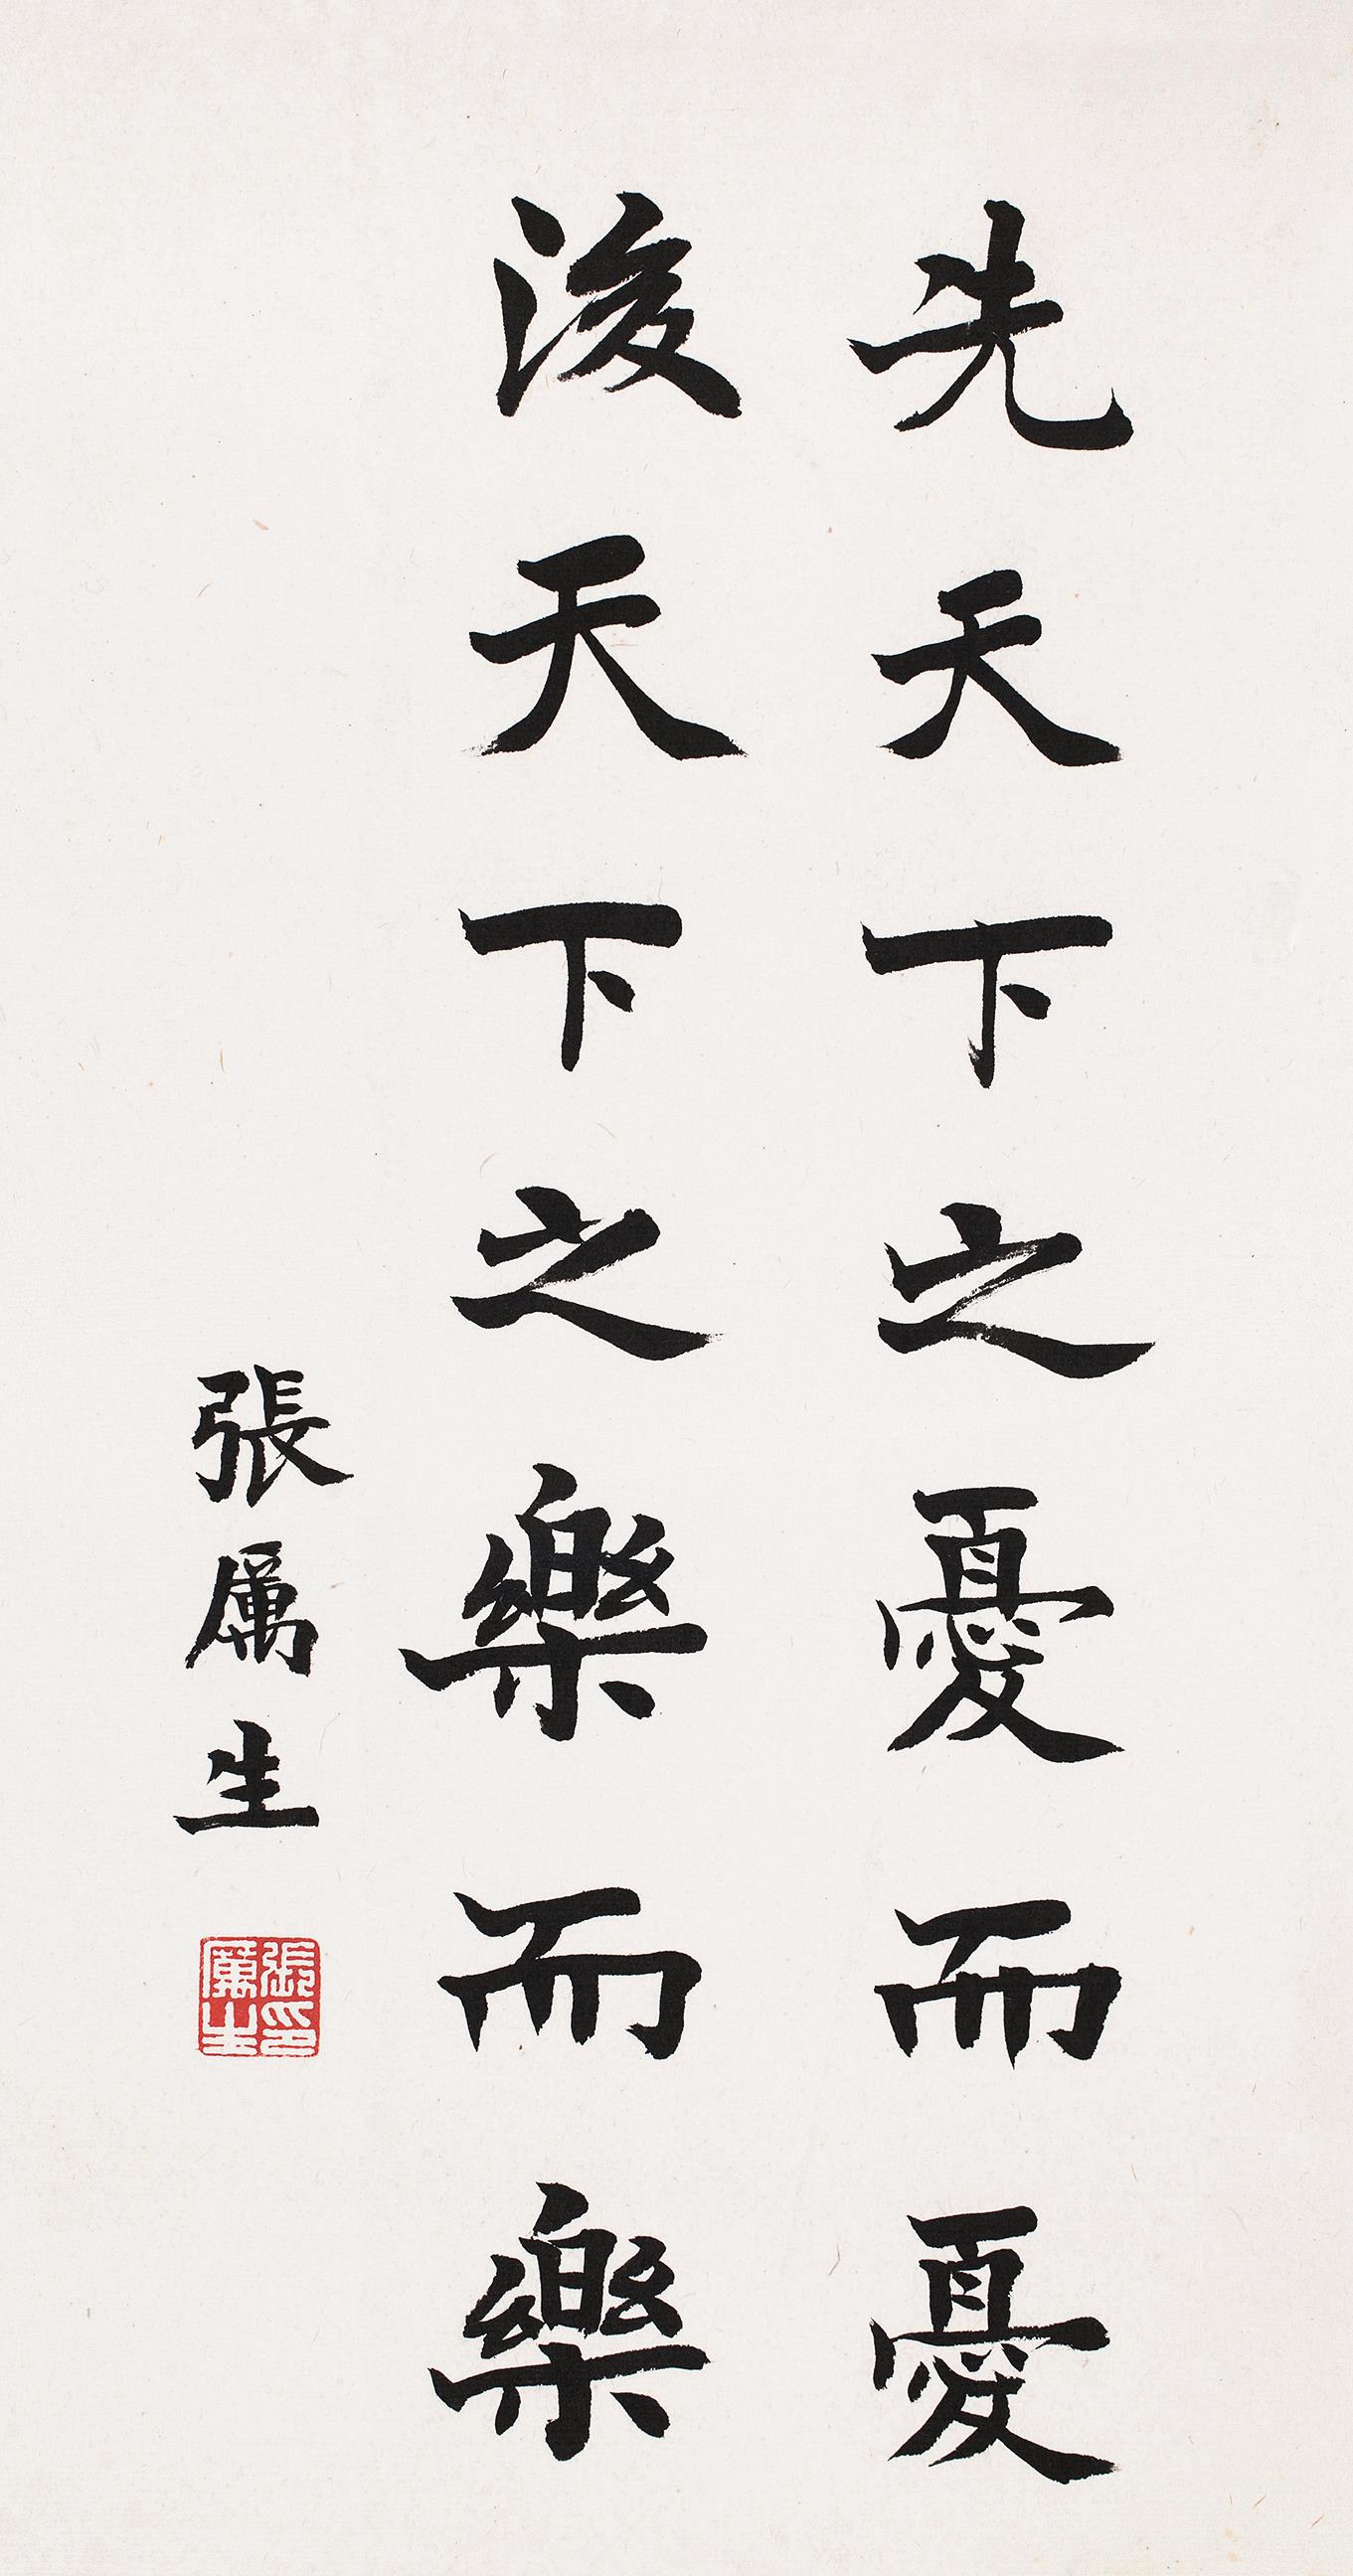 先天下之憂而憂
後天下之樂而樂
張厲生
張厲生印